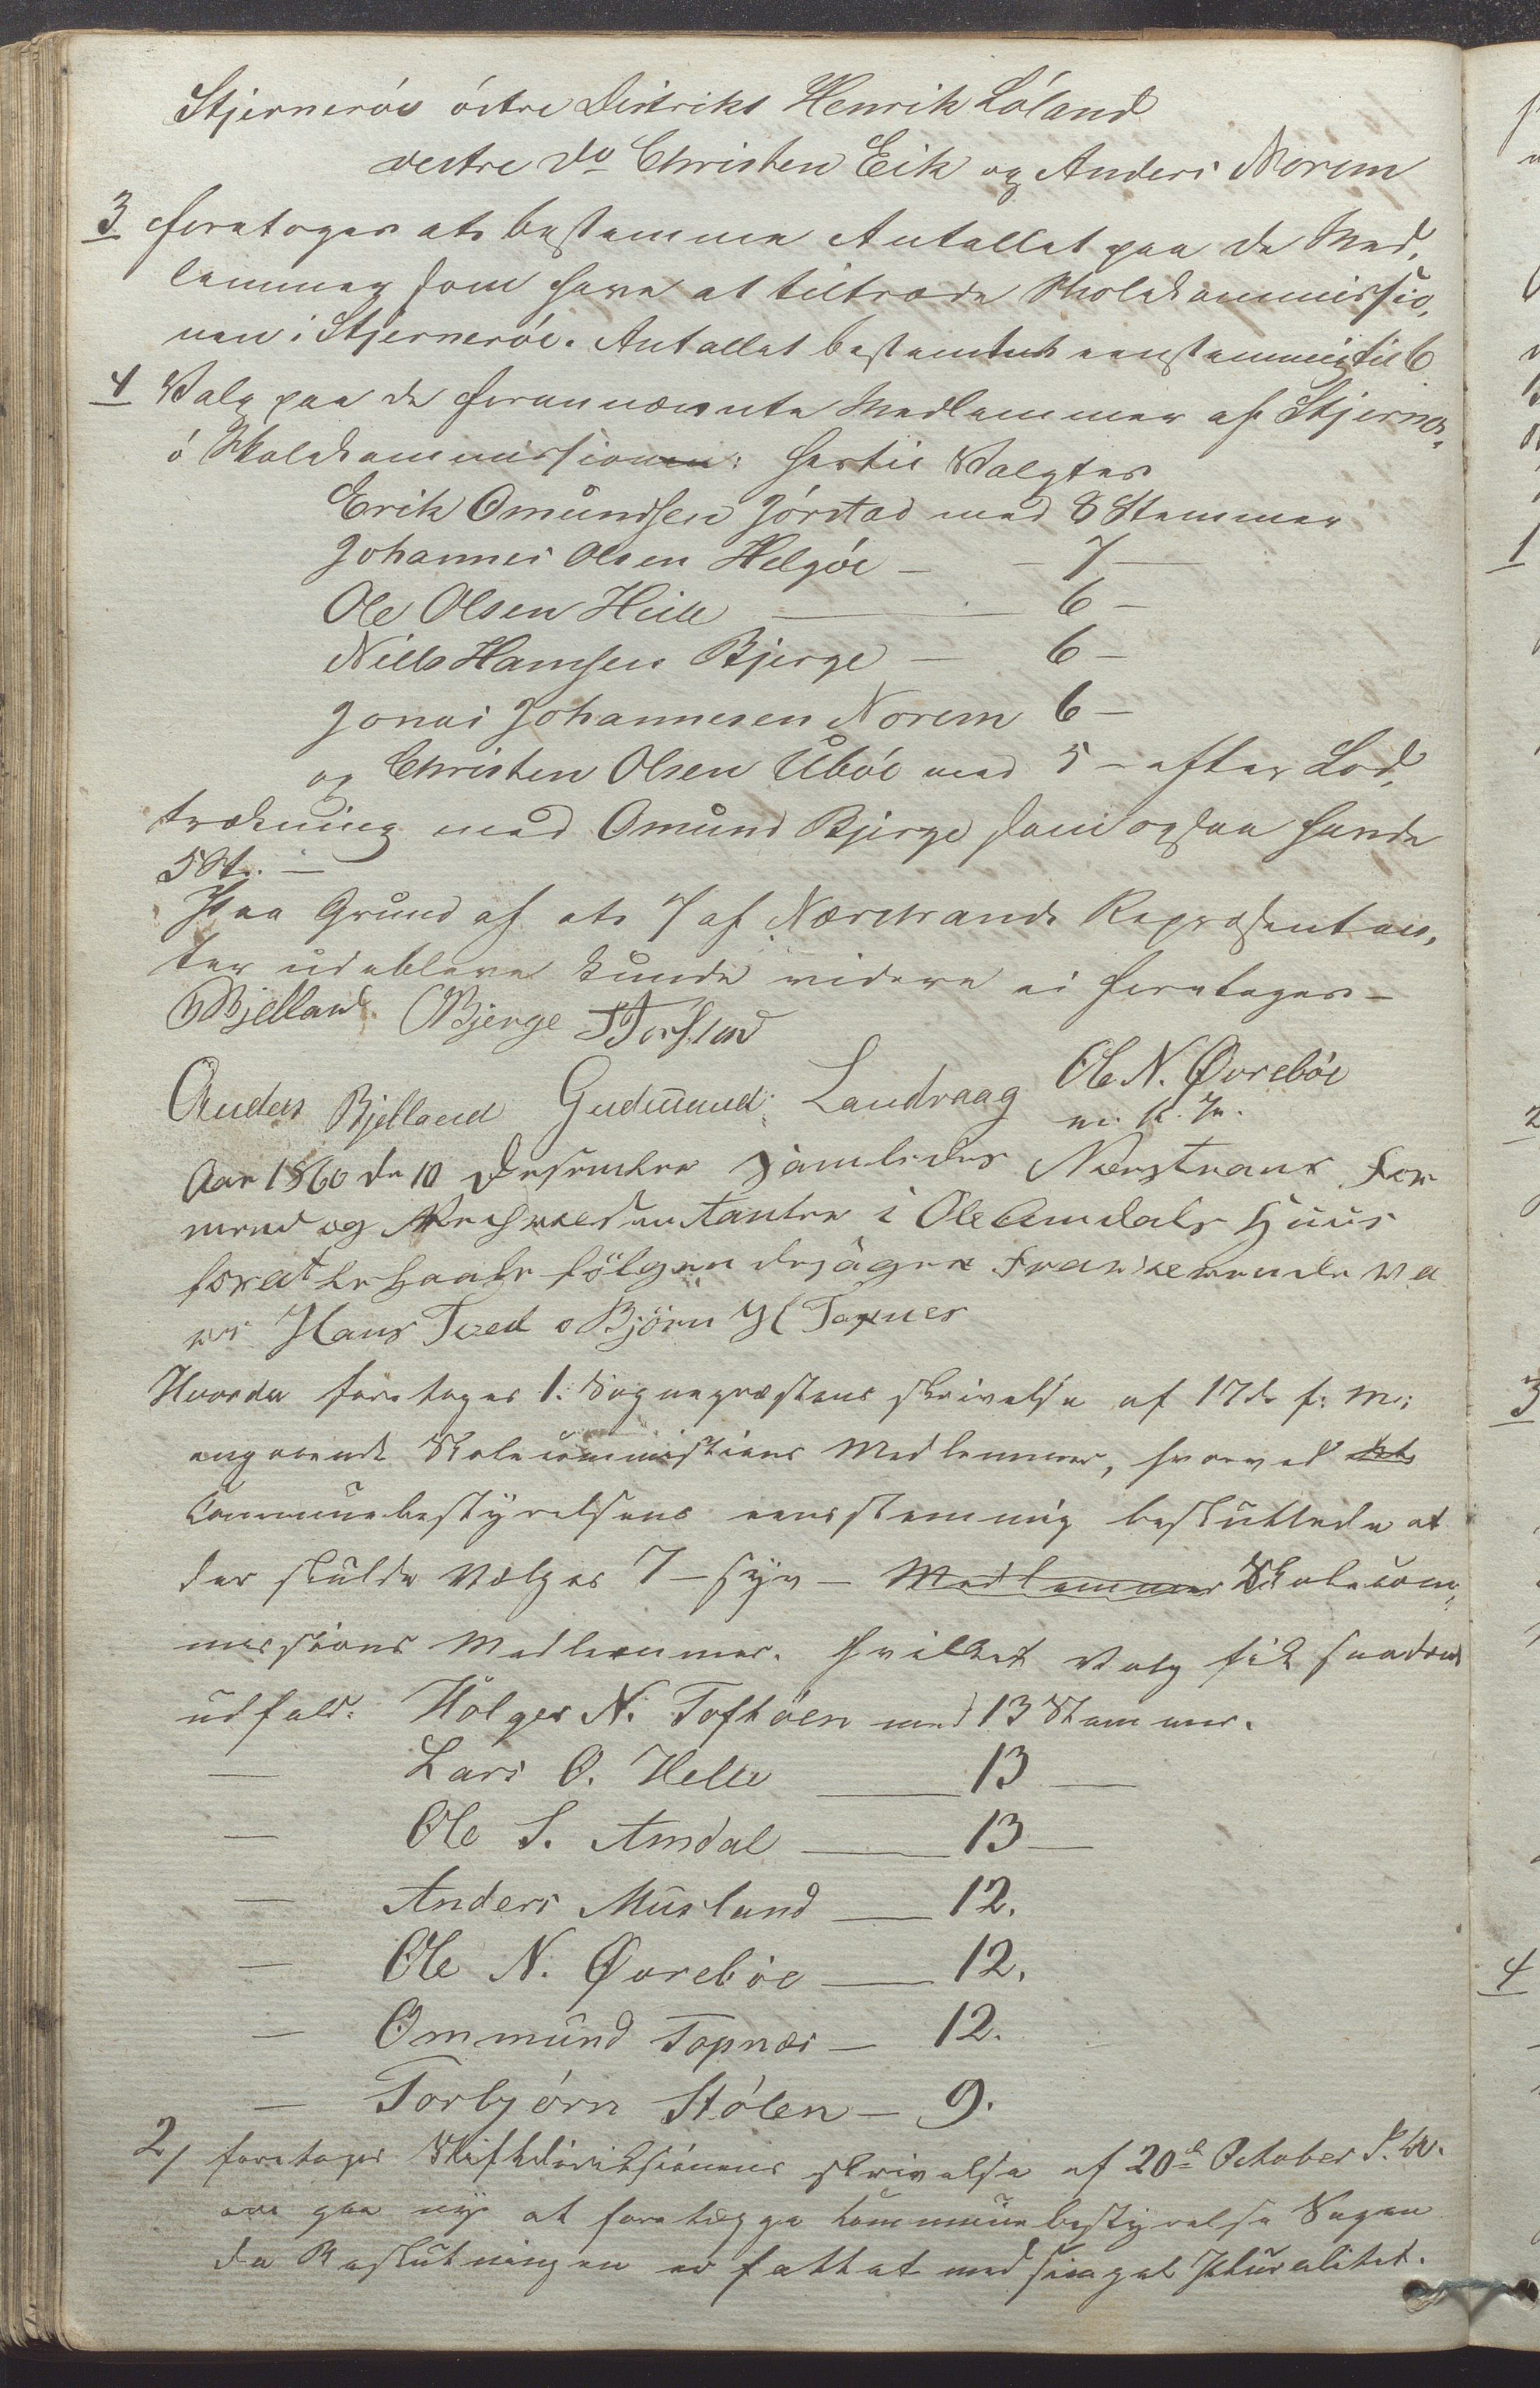 Stjernerøe østre Distrikt Henrik Løland
vestre do Christen Eik og Anders Norem
3 foretoges at bestemme Antallet paa de Med,
lemmer som have at tiltræde Skolekommissio,
nen i Stjernerøe. Antallet bestemtes eenstemmig til 6
4 Valg paa de forannævnte Medlemmer af Stjerner,
ø Skolekommissionen: hertil Valgtes
Erik Omundsen Jørstad med 8 Stemmer
Johannes Olsen Helgøe — — 7 —
Ole Olsen Helle — 6 —
Niels Hansen Bjerge — 6 —
Jonas Johannesen Norem 6 —
og Christen Olsen Ubøe med 5 — efter Lod,
trækning med Omund Bjerge som ogsaa havde
5 St. —
Paa Grund af at 7 af Nærstrands Repræsentan,
ter udebleve kunde videre ei foretages —
Bjelland. OBjerge
Anders Bjelland Gudmund Landraag Ole N. Øvrebøe
m. p. P.
Aar 1860 de 10 Desember samledes Nerstrans For
mend og Repræsentanter i Ole Amdals Huus
forat behandle følgende sager Fraværende va
re Hans Tved o Bjørn H Topnes
Hvorda foretoges 1. Sognepræstens skrivelse af 17de f. M.
angaaende Skolecommissions Medlemmer, hvorved
Communebestyrelsens eensstemmig besluttede at
der skulde Vælges 7 — syv — Medlemmer Skolecom,
missions Medlemmer. Hvilket Valg fik saadant
udfald: Holger N. Toftøen med 13 Stemmer.
— Lars O. Helle — 13 —
— Ole S. Amdal — 13 —
— Anders Musland — 12.
— Ole N. Øvrebøe — 12.
— Ommund Topnæs — 12.
— Torbjørn Stølen — 9.
2, foretoges Stiftdirektionens skrivelse af 20de October
paa ny at forelægge Communebestyrelse Sagen
da Beslutningen er fattet med simpel Pluralitet.